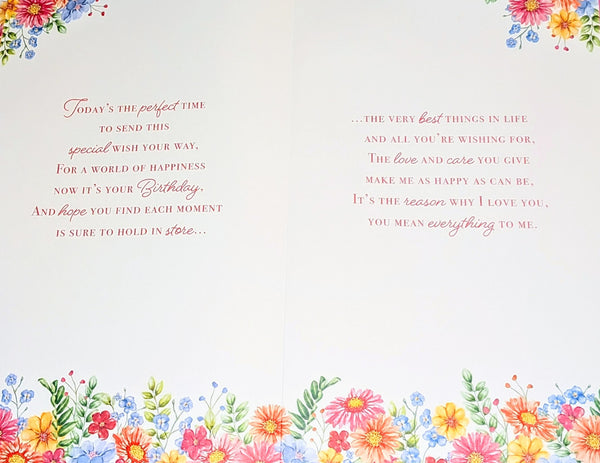 Today's the perfect time
to send this
special wish your way,
For a world of happiness
now it's your Birthday,
And hope you find each moment
is sure to hold in store...
...the very best things in life
and all you're wishing for,
The love and care you give
make me as happy as can be,
It's the reason why I love you,
you mean everything to me.